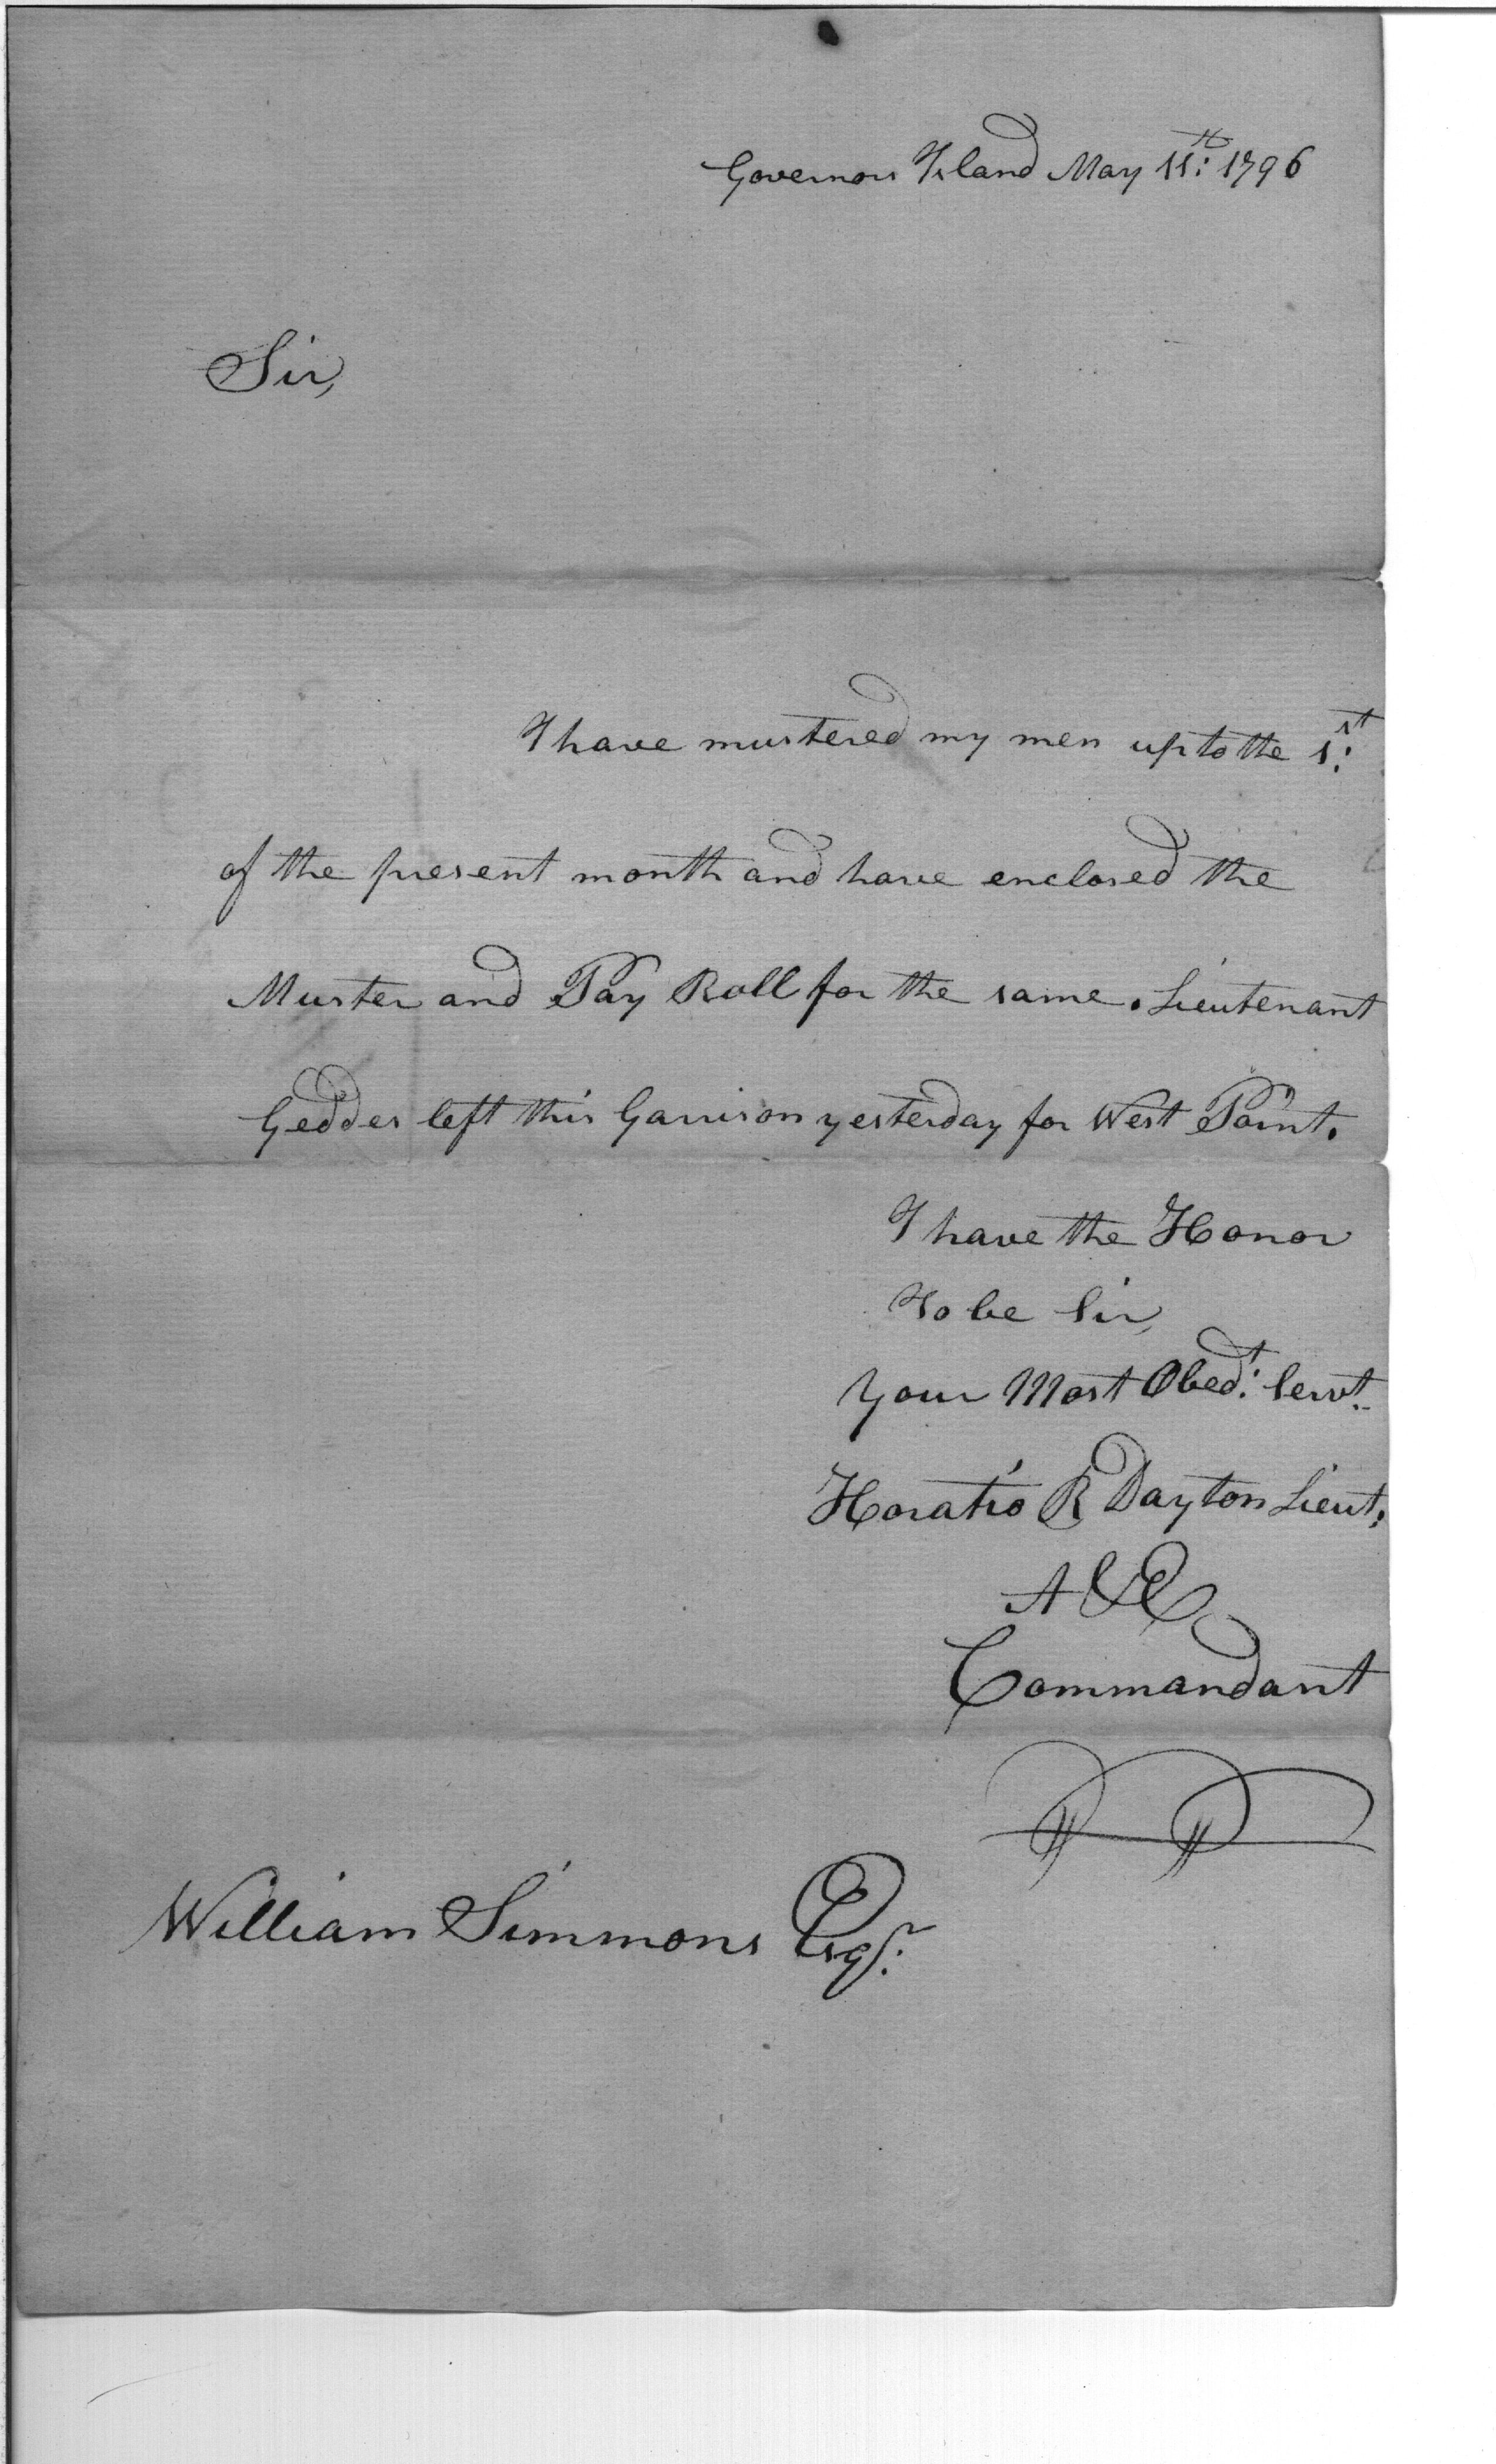 Governors Island May 11th: 1796
Sir,
I have mustered my men up to the 1st:
of the present month and have enclosed the
Muster and Pay Roll for the same. Lieutenant
Geddes left this Garrison yesterday for West Point.
I have the Honor
To be Sir,
Your Most Obedt: Servt.
Horatio R Dayton Lieut:
A & E
Commandant
William Simmons Esqr: